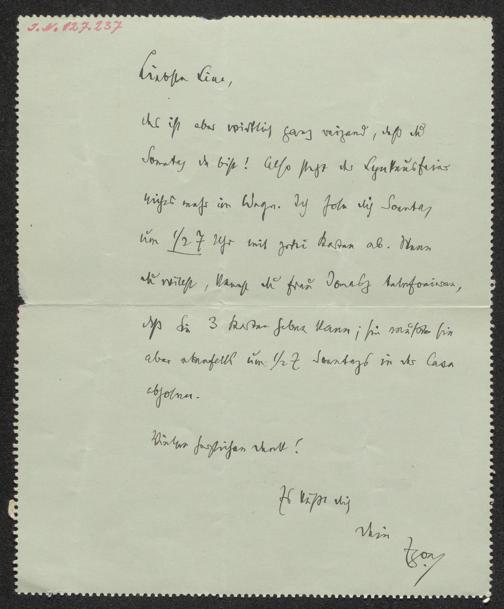 I.N. 127.237
Liebste Lina,
das ist aber wirklich ganz reizend, daß du
Sonntag da bist! Also steht der Lynkeusfeier
nichts mehr im Wege. Ich hole dich Sonntag
um 1/2 7 Uhr mit zwei Karten ab. Wenn
du willst, kannst du Frau telefonieren,
daß sie 3 Karten haben kann; sie müßte sie
aber ebenfalls um 1/2 7 Sonntags in der Casa
abholen.
Vielen herzlichen Dank!
Es küßt dich
dein
Egon